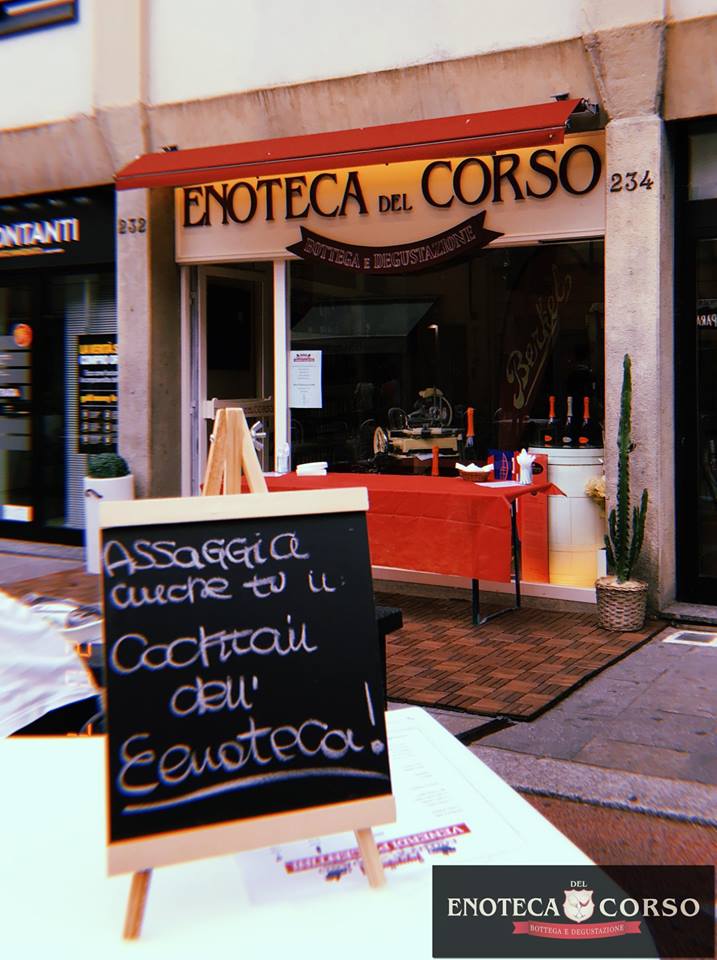 ONTANTI
232
ENOTECA DEL CORSO
234
BOTTEGA E DEGUSTAZIONE
Berkel
ASSAGGIA
anche tu il
Cocktail
dell'
Eenoteca!
VENERDI
DEL
ENOTECA CORSO
BOTTEGA E DEGUSTAZIONE